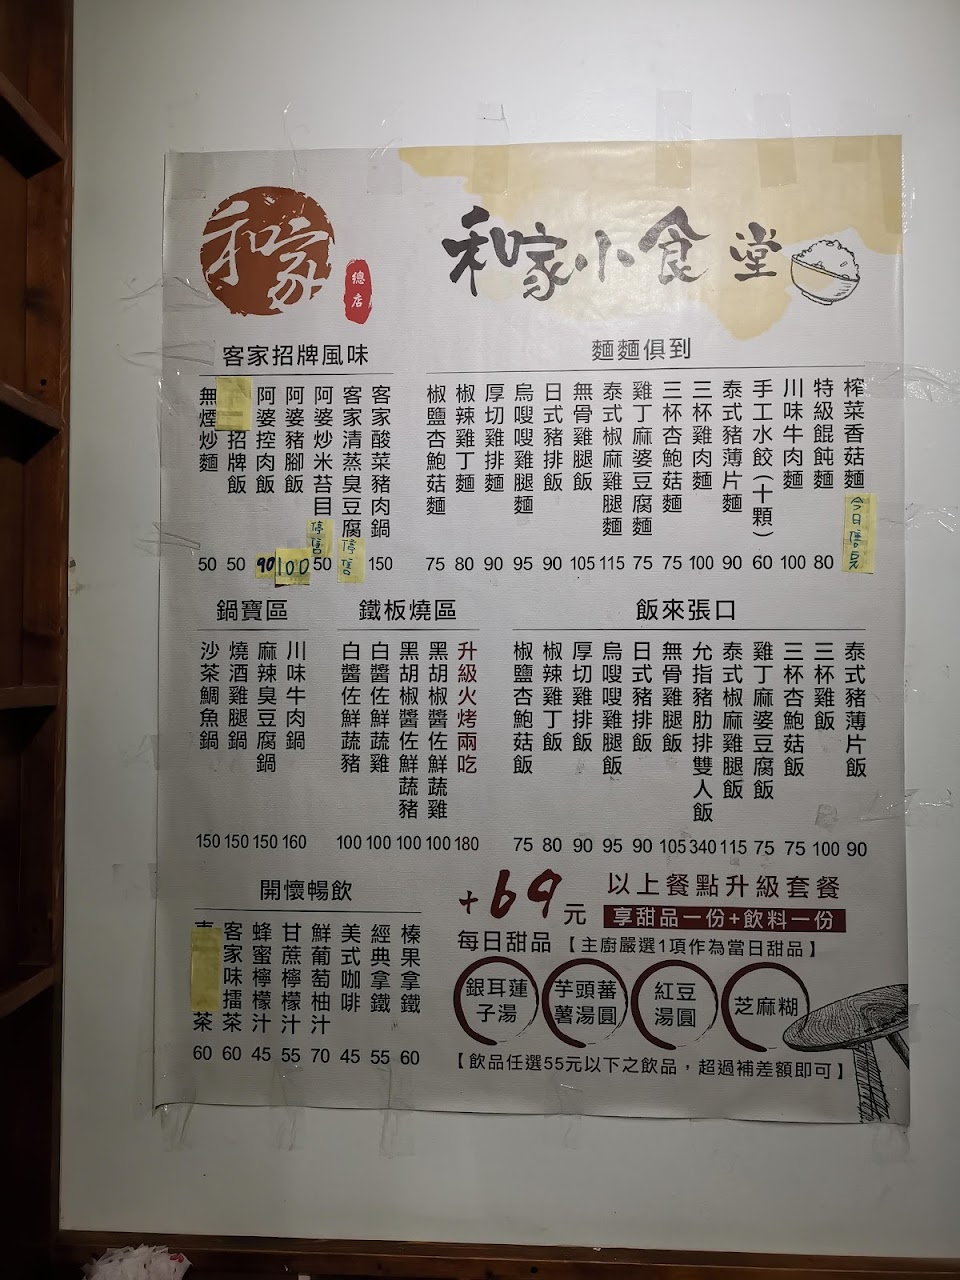 和家
總店
和家小食堂
客家招牌風味
無煙炒麵 50
招牌飯 50
阿婆控肉飯 90
阿婆豬腳飯 100
阿婆炒米苔目 50 停售
客家清蒸臭豆腐 停售
客家酸菜豬肉鍋 150
麵麵俱到
椒鹽杏鮑菇麵 75
椒辣雞丁麵 80
厚切雞排麵 90
烏嗖嗖雞腿麵 95
日式豬排飯 90
無骨雞腿飯 105
泰式椒麻雞腿麵 115
雞丁麻婆豆腐麵 75
三杯杏鮑菇麵 75
三杯雞肉麵 100
泰式豬薄片麵 90
手工水餃(十顆) 60
川味牛肉麵 100
特級餛飩麵 80
榨菜香菇麵 今日售完
鍋寶區
沙茶鯛魚鍋 150
燒酒雞腿鍋 150
麻辣臭豆腐鍋 150
川味牛肉鍋 160
鐵板燒區
白醬佐鮮蔬豬 100
白醬佐鮮蔬雞 100
黑胡椒醬佐鮮蔬豬 100
黑胡椒醬佐鮮蔬雞 100
升級火烤兩吃 180
飯來張口
椒鹽杏鮑菇飯 75
椒辣雞丁飯 80
厚切雞排飯 90
烏嗖嗖雞腿飯 95
日式豬排飯 90
無骨雞腿飯 105
允指豬肋排雙人飯 340
泰式椒麻雞腿飯 115
雞丁麻婆豆腐飯 75
三杯杏鮑菇飯 75
三杯雞飯 100
泰式豬薄片飯 90
開懷暢飲
茶 60
客家味擂茶 60
蜂蜜檸檬汁 45
甘蔗檸檬汁 55
鮮葡萄柚汁 70
美式咖啡 45
經典拿鐵 55
榛果拿鐵 60
+69元 以上餐點升級套餐
享甜品一份+飲料一份
每日甜品【主廚嚴選1項作為當日甜品】
銀耳蓮子湯
芋頭蕃薯湯圓
紅豆湯圓
芝麻糊
【飲品任選55元以下之飲品，超過補差額即可】